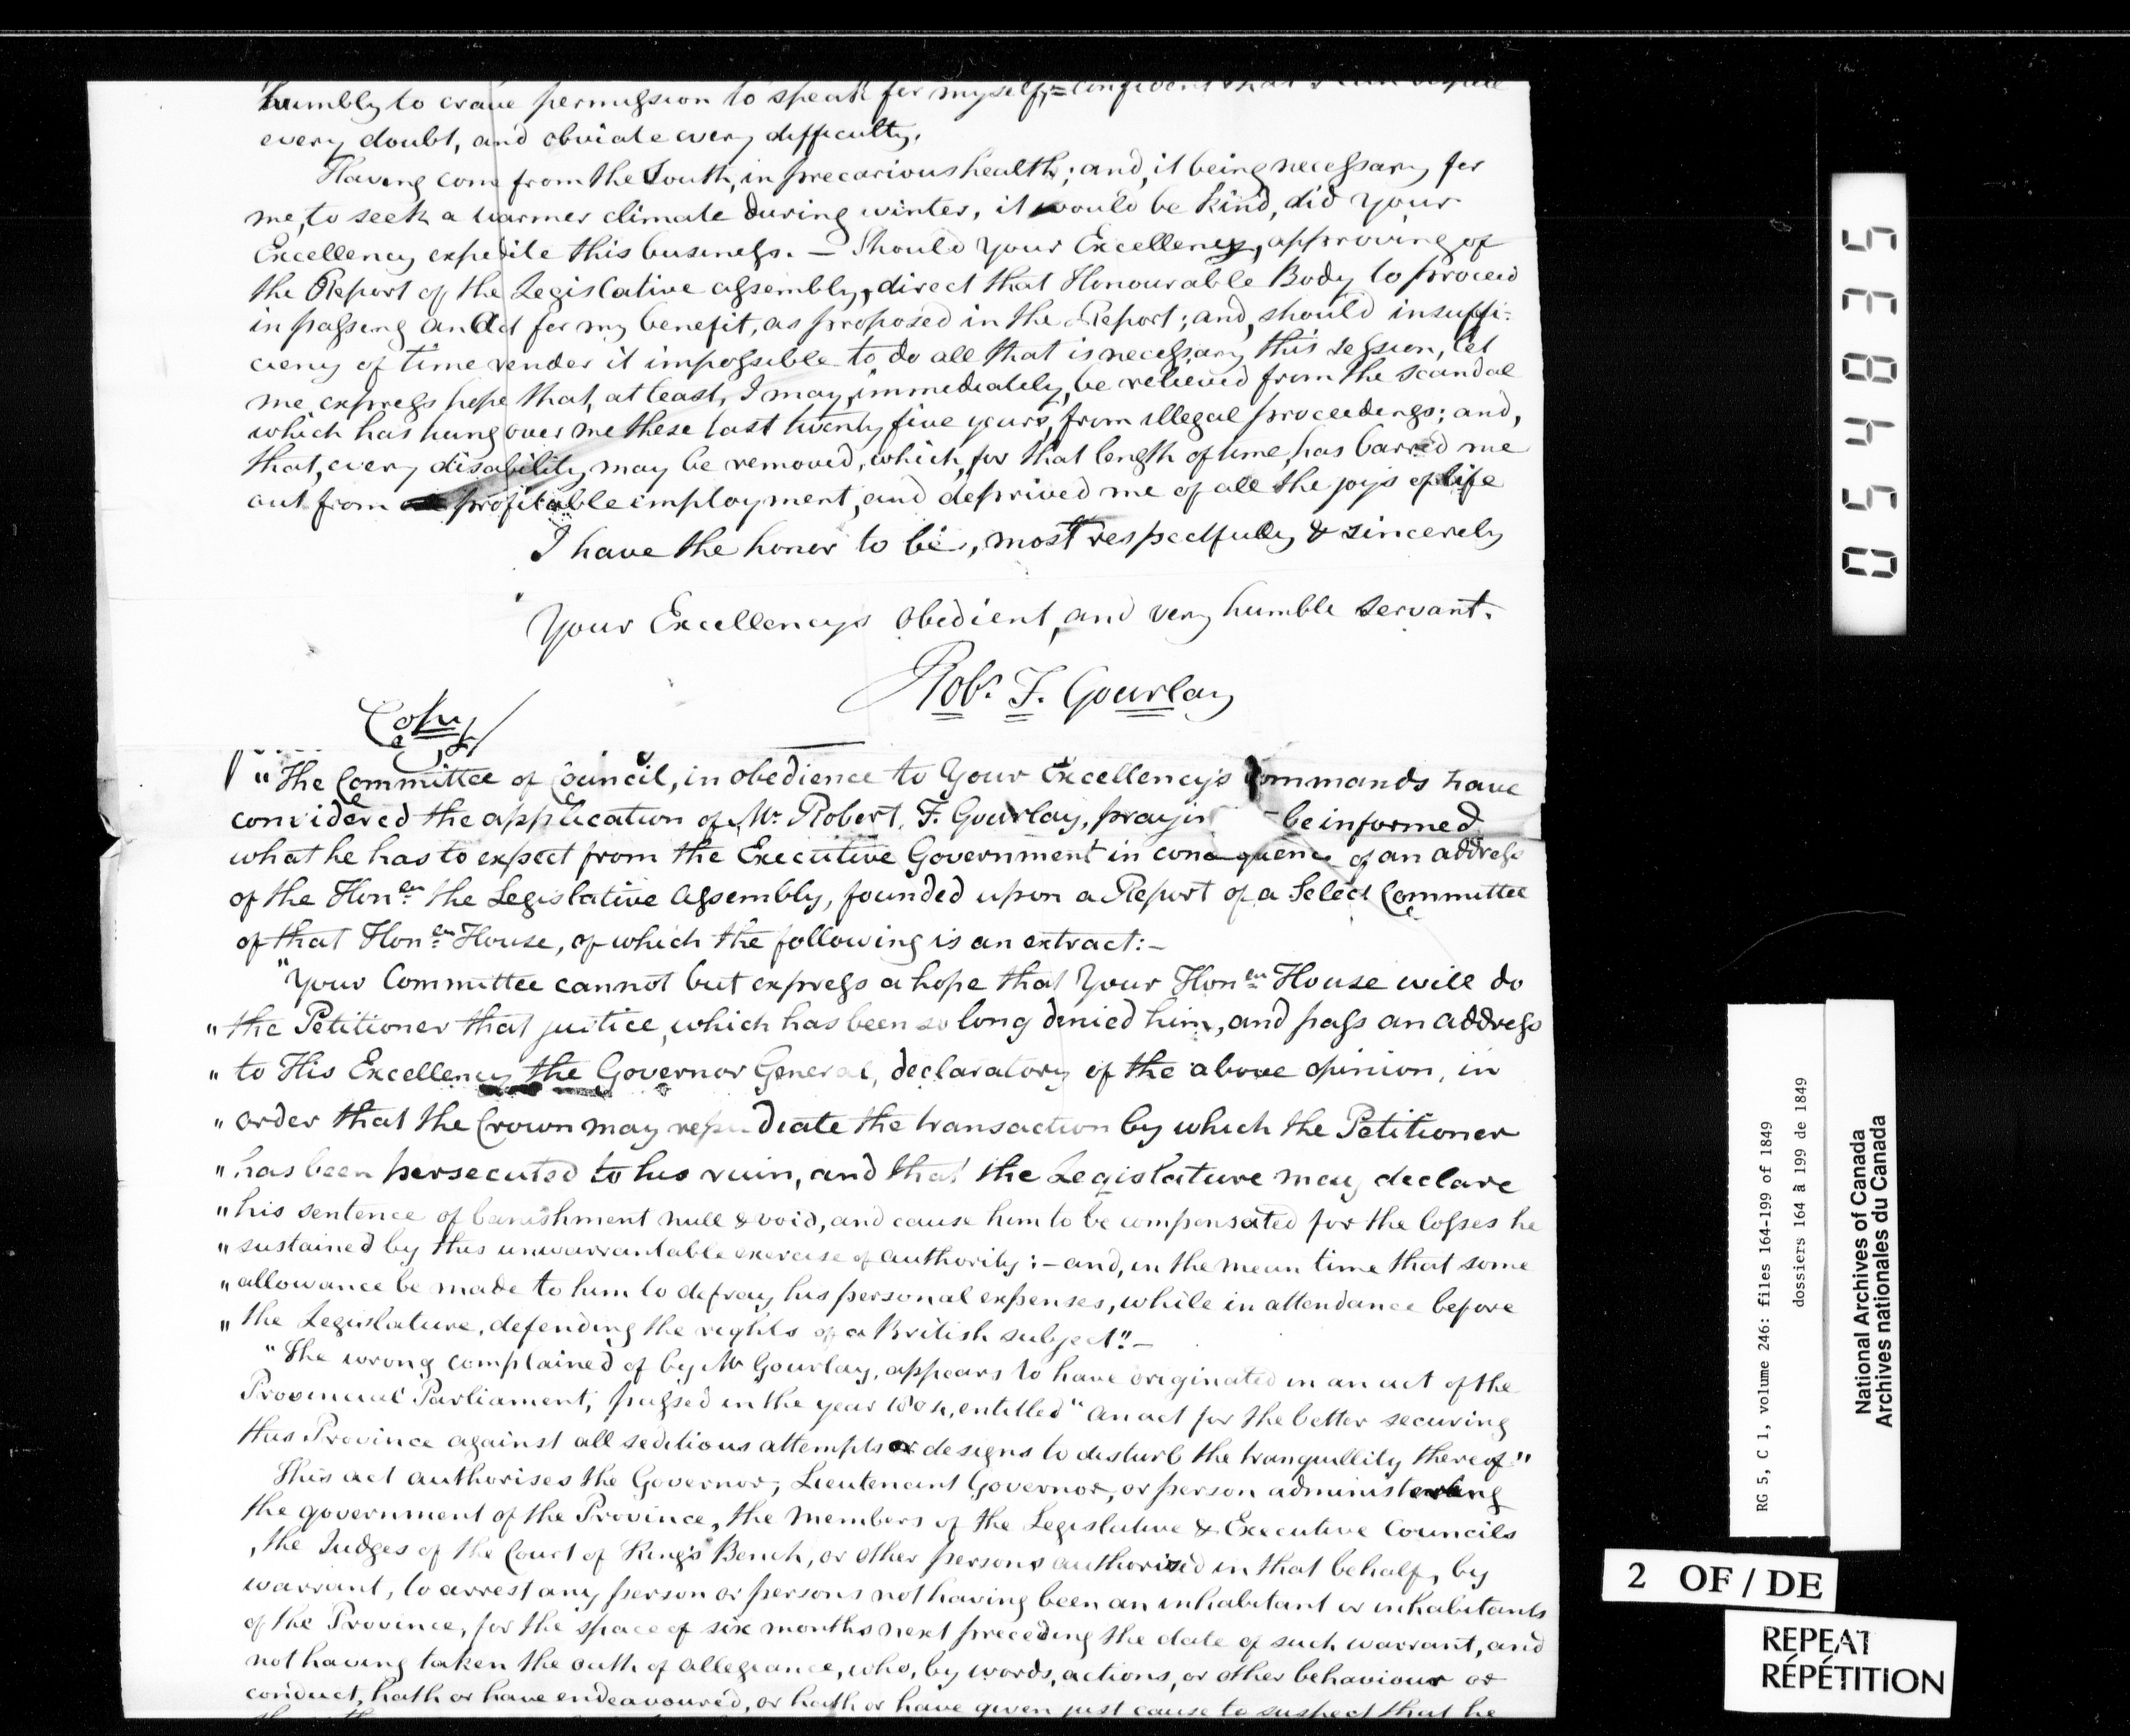 humbly to crave permission to speak for myself, = confident that I can
every doubt, and obviate every difficulty.
Having come from the South, in precarious health; and, it being necessary for
me, to seek a warmer climate during winter, it would be kind, did Your
Excellency expedite this business. — Should Your Excellency, approving of
the Report of the Legislative assembly, direct that Honourable Body to proceed
in passing an Act for my benefit, as proposed in the Report; and, should insuffi-
ciency of time render it impossible to do all that is necessary this session, let
me express hope that, at least, I may, immediately, be relieved from the scandal
which has hung over me these last twenty five years, from illegal proceedings; and,
that, every disability may be removed, which, for that length of time, has barred me
out from profitable employment, and deprived me of all the joys of life
I have the honor to be, most respectfully & sincerely
Your Excellencys obedient, and very humble servant.
Robt. F. Gourlay
Copy
"The Committee of Council, in obedience to Your Excellency's Commands have
considered the application of Mr Robert. F. Gourlay, prayin be informed
what he has to expect from the Executive Government in consequence of an address
of the Honble the Legislative Assembly, founded upon a Report of a Select Committee
of that Honble House, of which the following is an extract:—
"Your Committee cannot but express a hope that Your Honble House will do
" the Petitioner that justice, which has been so long denied him, and pass an address
" to His Excellency the Governor General, declaratory of the above opinion, in
" order that the Crown may repudiate the transaction by which the Petitioner
" has been persecuted to his ruin, and that the Legislature may declare
" his sentence of banishment null & void, and cause him to be compensated for the losses he
" sustained by this unwarrantable exercise of authority: — and, in the mean time that some
" allowance be made to him to defray his personal expenses, while in attendance before
" the Legislature, defending the rights of a British subject". —
"The wrong complained of by Mr Gourlay, appears to have originated in an act of the
Provincial Parliament, passed in the year 1804, entitled "An act for the better securing
this Province against all seditious attempts or designs to disturb the tranquillity thereof"
This act authorises the Governor, Lieutenant Governor, or person administering
the government of the Province, the Members of the Legislative & Executive Councils
, the Judges of the Court of King's Bench, or other persons authorised in that behalf, by
warrant, to arrest any person or persons not having been an inhabitant or inhabitants
of the Province, for the space of six months next preceding the date of such warrant, and
not having taken the oath of allegiance, who, by words, actions, or other behaviour or
conduct, hath or have endeavoured, or hath or have given just cause to suspect that he
054835
RG 5, C 1, volume 246: files 164-199 of 1849
dossiers 164 à 199 de 1849
National Archives of Canada
Archives nationales du Canada
2 OF / DE
REPEAT
RÉPÉTITION